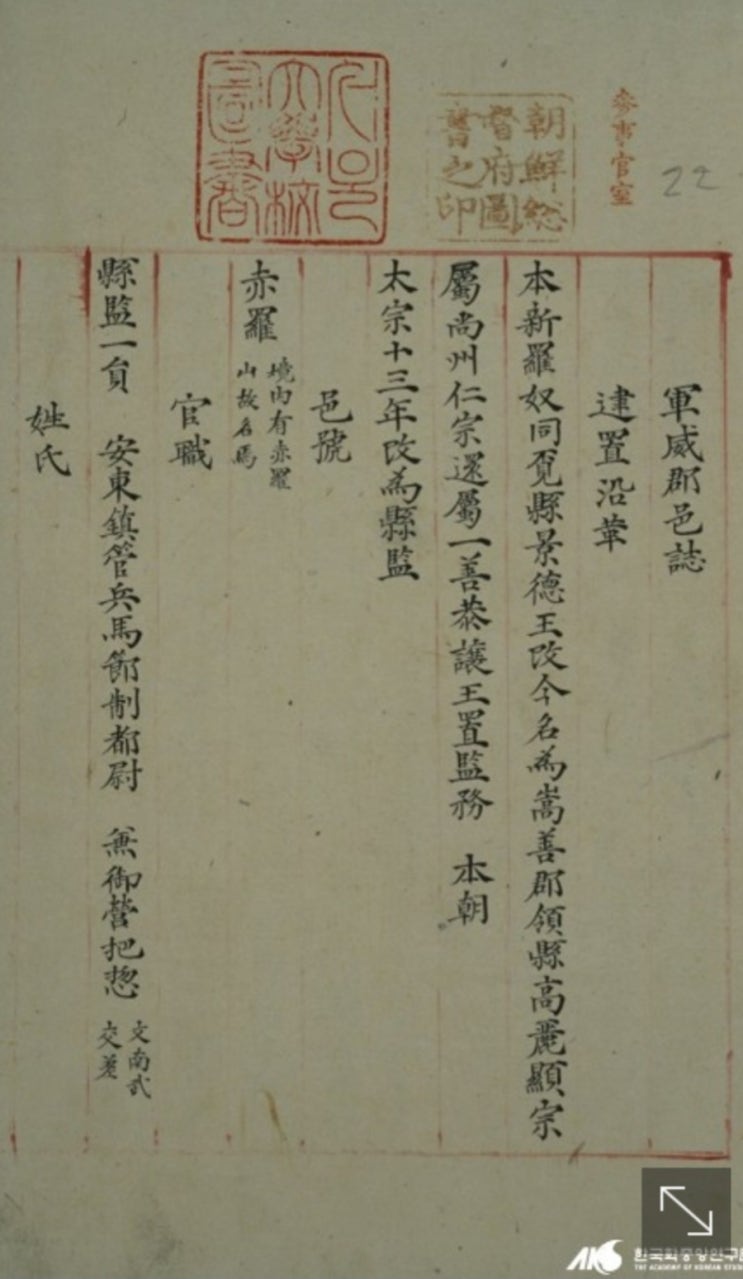 22
參事官室
朝鮮総
督府圖
書之印
서울
大學校
圖書
軍威郡邑誌
建置沿革
本新羅奴同覓縣景德王改今名為嵩善郡領縣高麗顯宗
屬尚州仁宗還屬一善恭讓王置監務 本朝
太宗十三年改為縣監
邑號
赤羅 境內有赤羅
山故名焉
官職
縣監一員 安東鎮管兵馬節制都尉 兼御營把摠 文南武
交差
姓氏
AKS 한국학중앙연구
THE ACADEMY OF KOREAN STUD